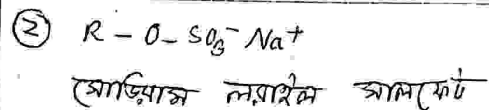 ② R - O - SO₃⁻ Na⁺
সোডিয়াম লরাইল সালফেট